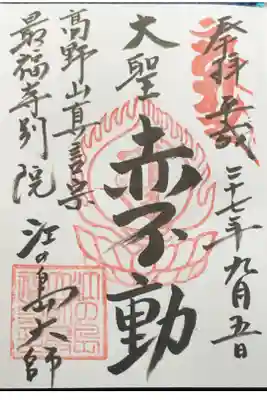 奉拝 平成二十七年九月五日
大聖 赤不動
高野山真言宗
最福寺別院 江の島大師